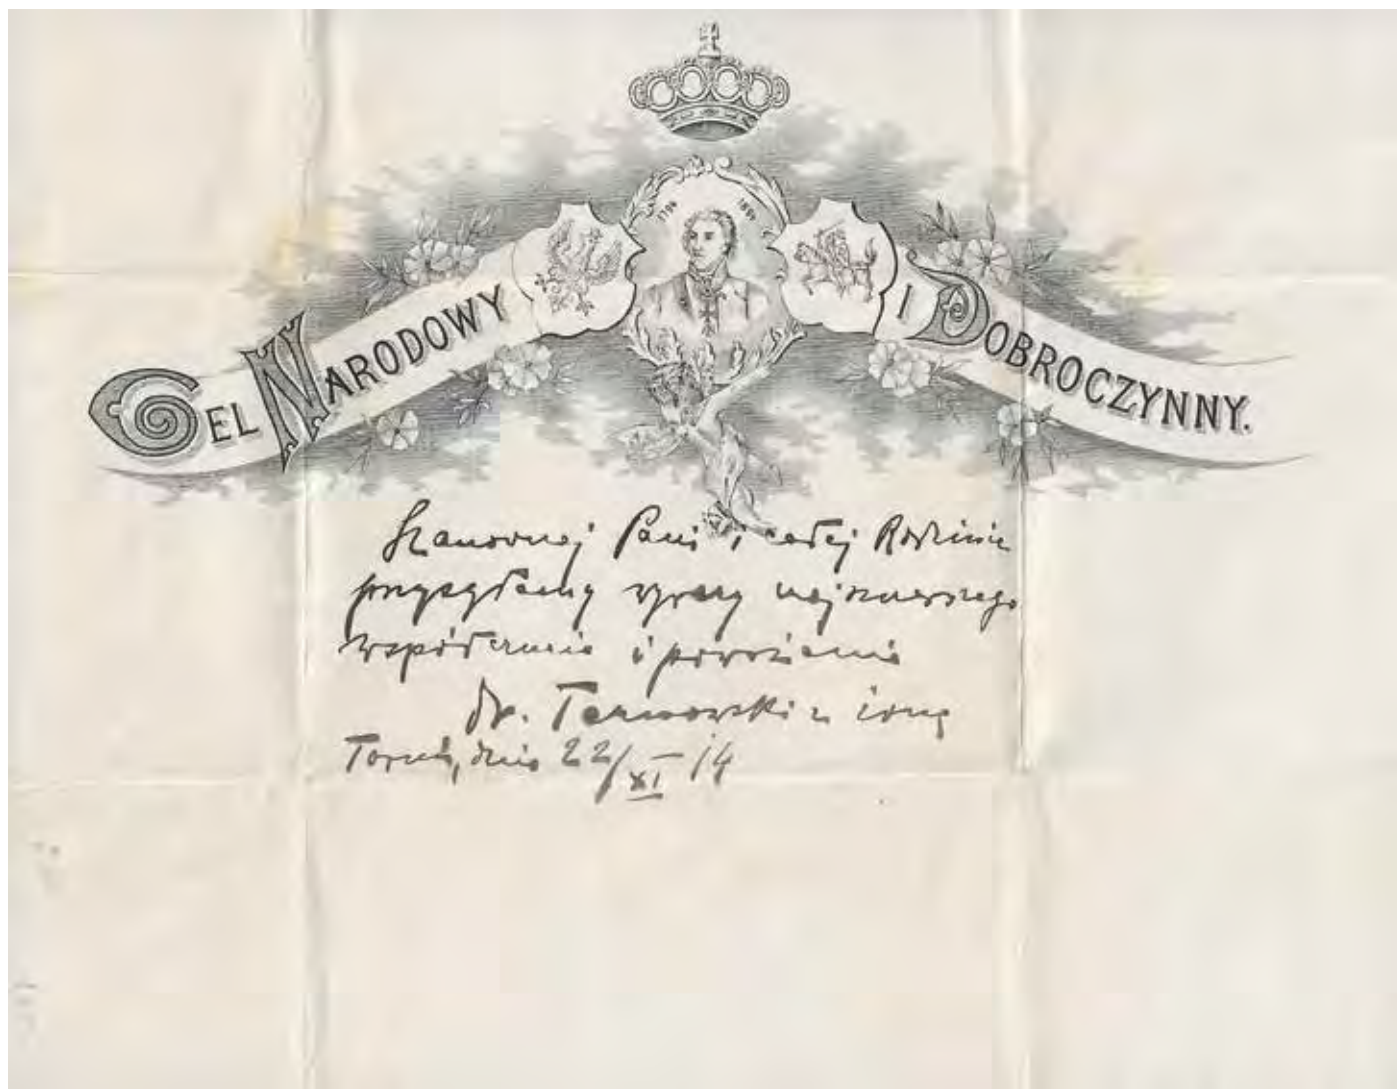 1794 1894
CEL NARODOWY I DOBROCZYNNY.
Szanownej Pani i całej Rodzinie
przysyłamy wyrazy najszczerszego
współczucia i poważania
Dr. z żoną
Toruń, dnia 22/XI – 14